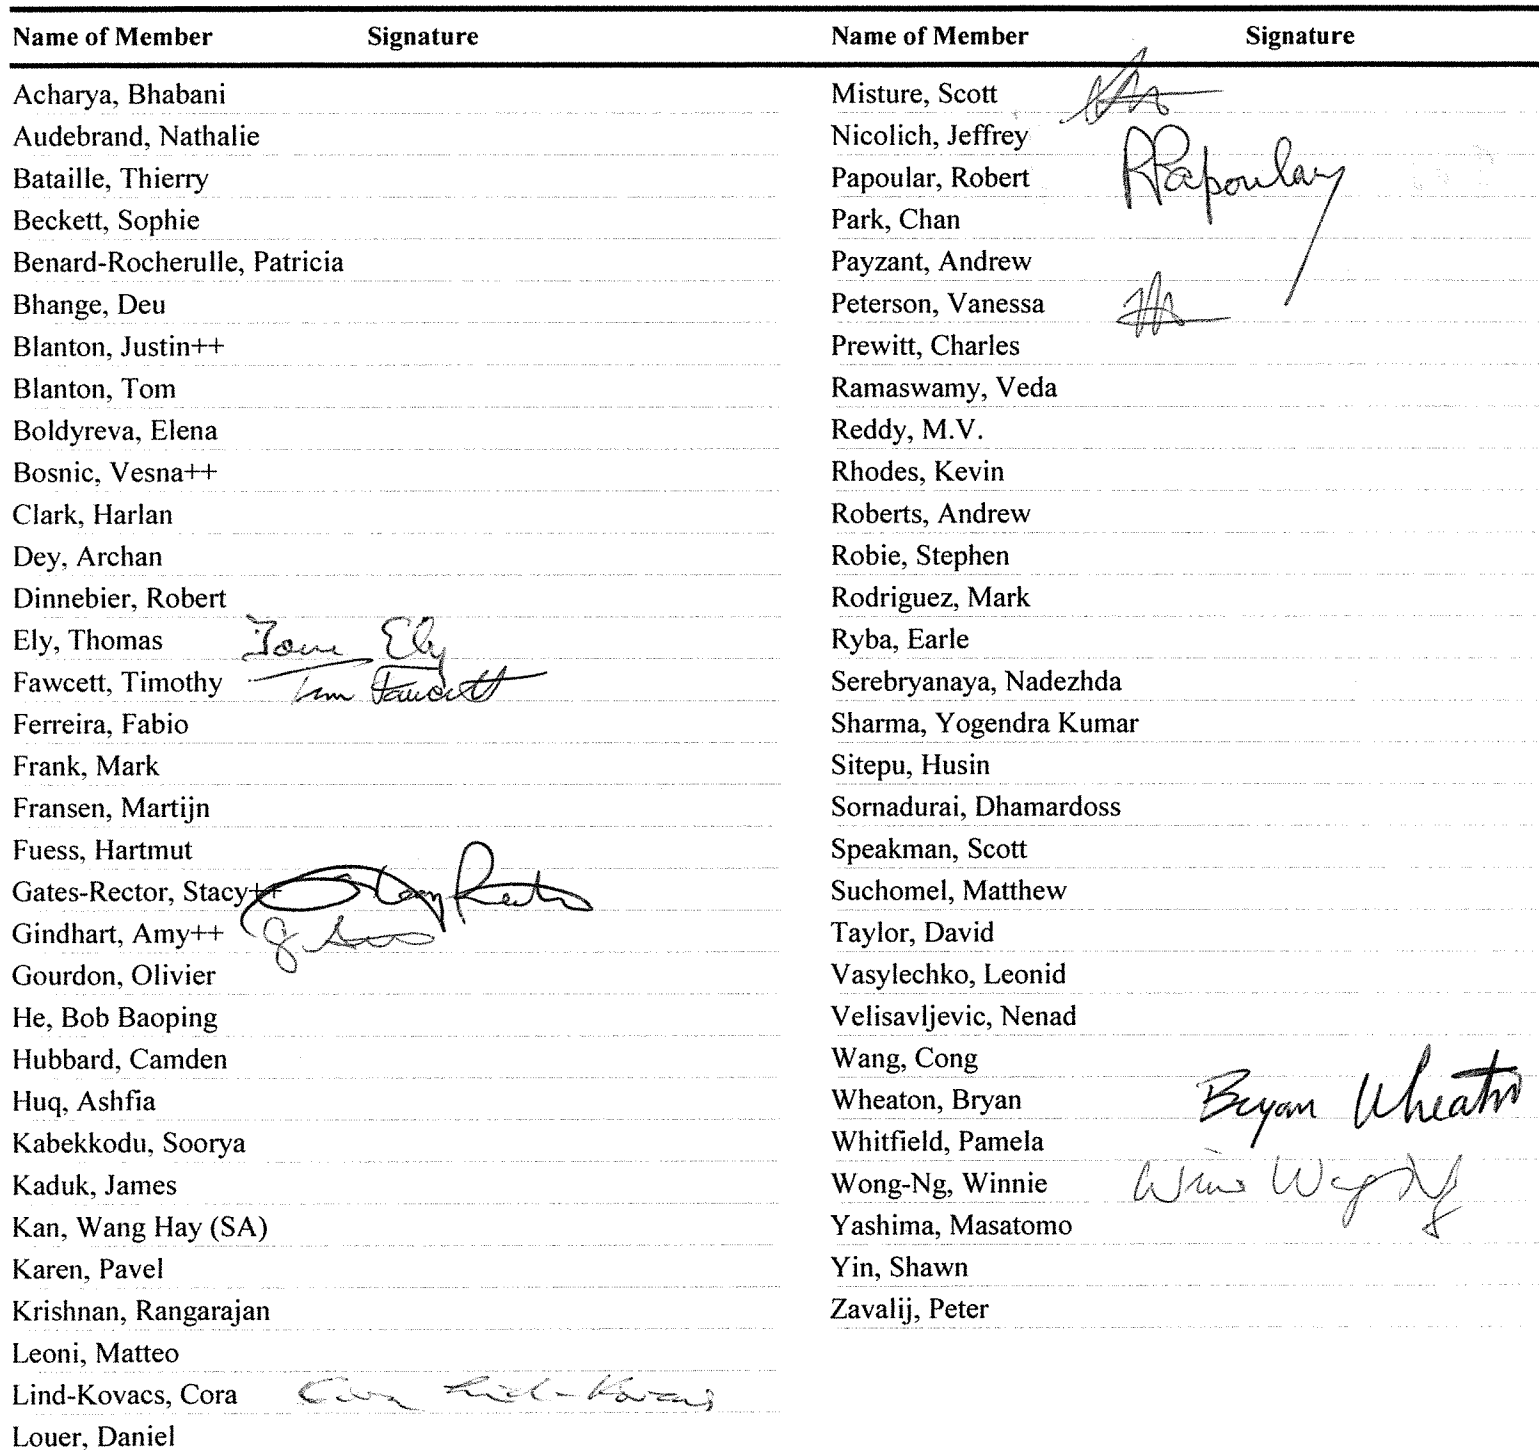 Name of Member Signature
Acharya, Bhabani
Audebrand, Nathalie
Bataille, Thierry
Beckett, Sophie
Benard-Rocherulle, Patricia
Bhange, Deu
Blanton, Justin++
Blanton, Tom
Boldyreva, Elena
Bosnic, Vesna++
Clark, Harlan
Dey, Archan
Dinnebier, Robert
Ely, Thomas Tom Ely
Fawcett, Timothy Tim Fawcett
Ferreira, Fabio
Frank, Mark
Fransen, Martijn
Fuess, Hartmut
Gates-Rector, Stacy++ Stacy Rector
Gindhart, Amy++
Gourdon, Olivier
He, Bob Baoping
Hubbard, Camden
Huq, Ashfia
Kabekkodu, Soorya
Kaduk, James
Kan, Wang Hay (SA)
Karen, Pavel
Krishnan, Rangarajan
Leoni, Matteo
Lind-Kovacs, Cora Cora Lind-Kovacs
Louer, Daniel
Name of Member Signature
Misture, Scott
Nicolich, Jeffrey
Papoular, Robert RPapoular
Park, Chan
Payzant, Andrew
Peterson, Vanessa
Prewitt, Charles
Ramaswamy, Veda
Reddy, M.V.
Rhodes, Kevin
Roberts, Andrew
Robie, Stephen
Rodriguez, Mark
Ryba, Earle
Serebryanaya, Nadezhda
Sharma, Yogendra Kumar
Sitepu, Husin
Sornadurai, Dhamardoss
Speakman, Scott
Suchomel, Matthew
Taylor, David
Vasylechko, Leonid
Velisavljevic, Nenad
Wang, Cong
Wheaton, Bryan Bryan Wheaton
Whitfield, Pamela
Wong-Ng, Winnie Winnie Wong-Ng
Yashima, Masatomo
Yin, Shawn
Zavalij, Peter